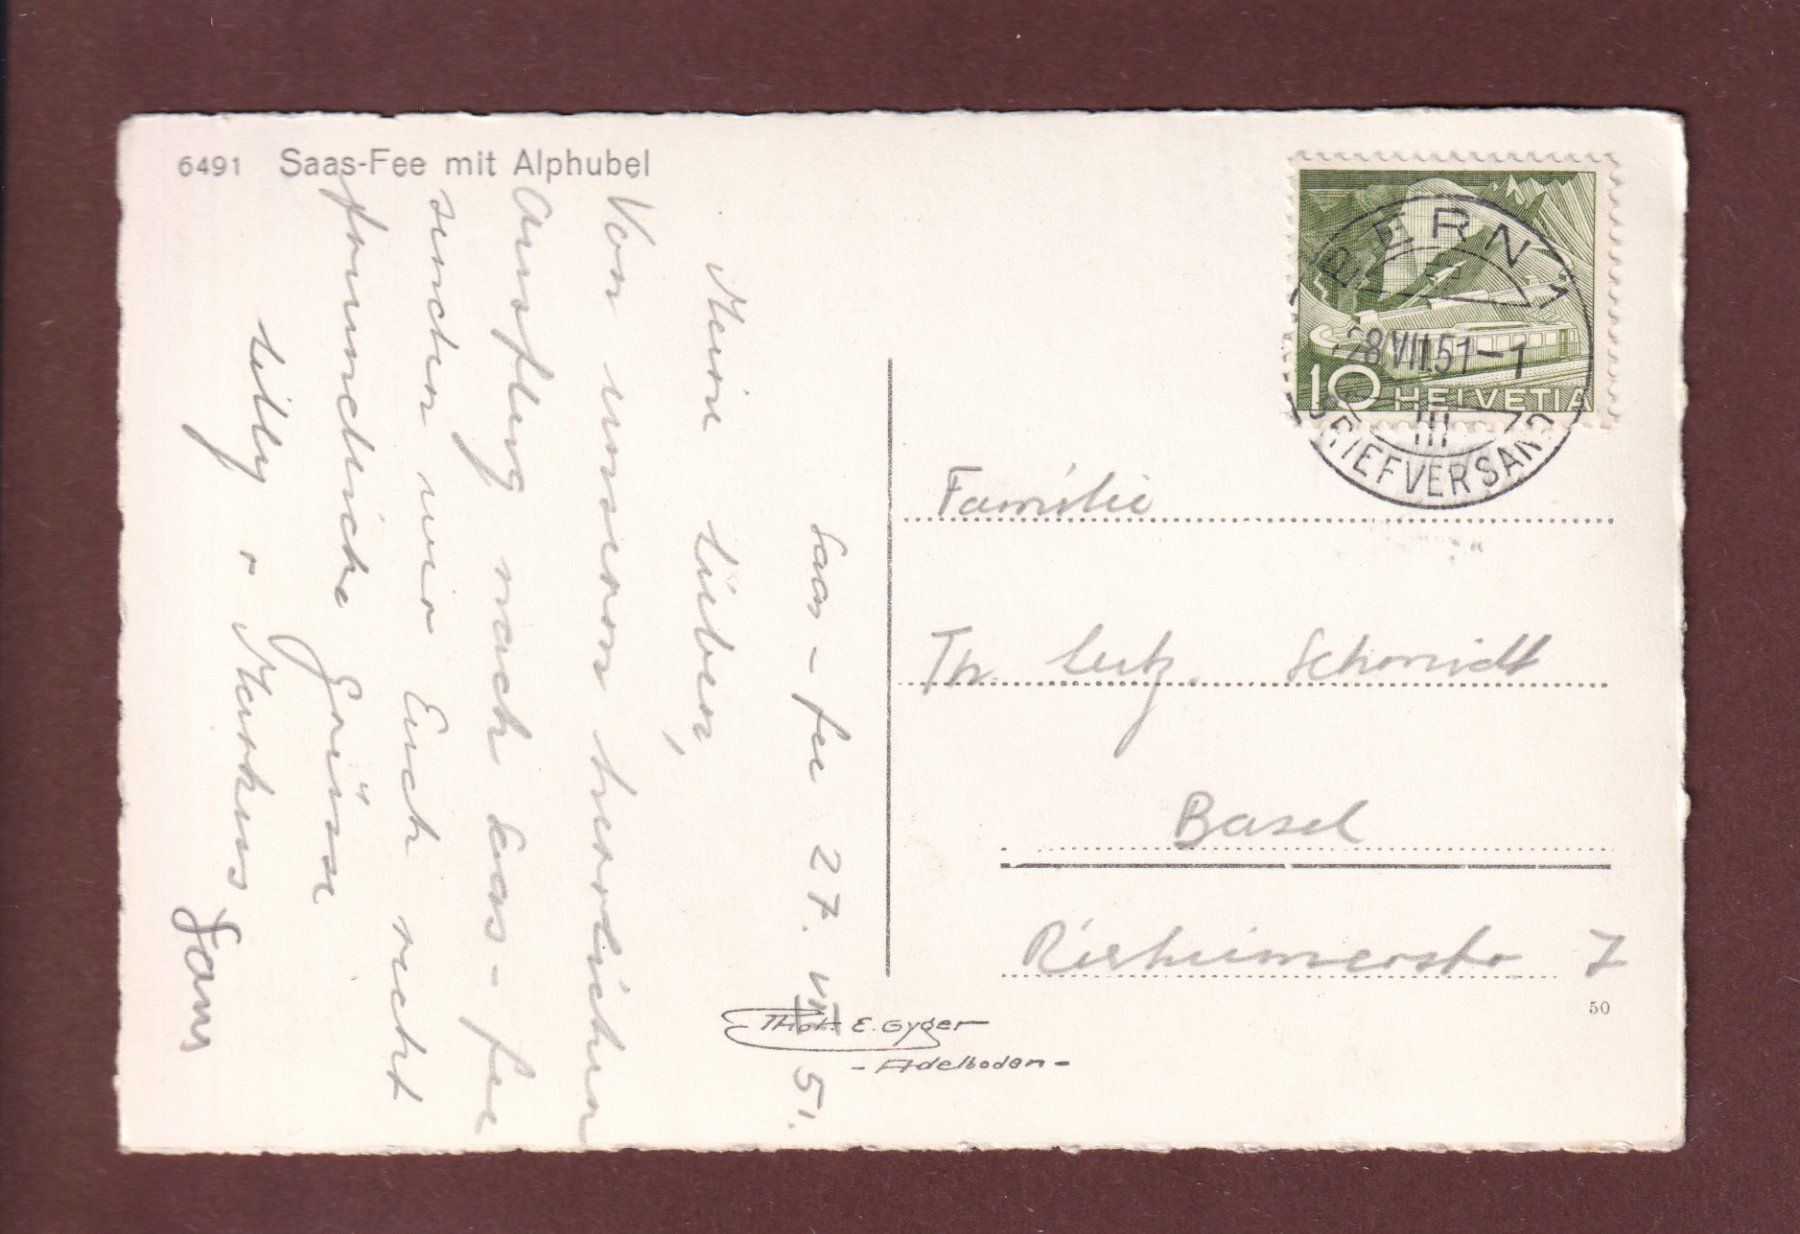 6491 Saas-Fee mit Alphubel
Saas-Fee 27. VII 51.
Meine Lieben,
Von unserem herrlichen
Ausflug nach Saas-Fee
senden wir Euch recht
freundliche Grüsse
Lilly + Markus
Familie
Th. Lutz. Schmidt
Basel
Rixheimerstr 7
BERN 1
28.VII.51-1
III
BRIEFVERSAND
10 HELVETIA
Phot. E. Gyger
- Adelboden -
50